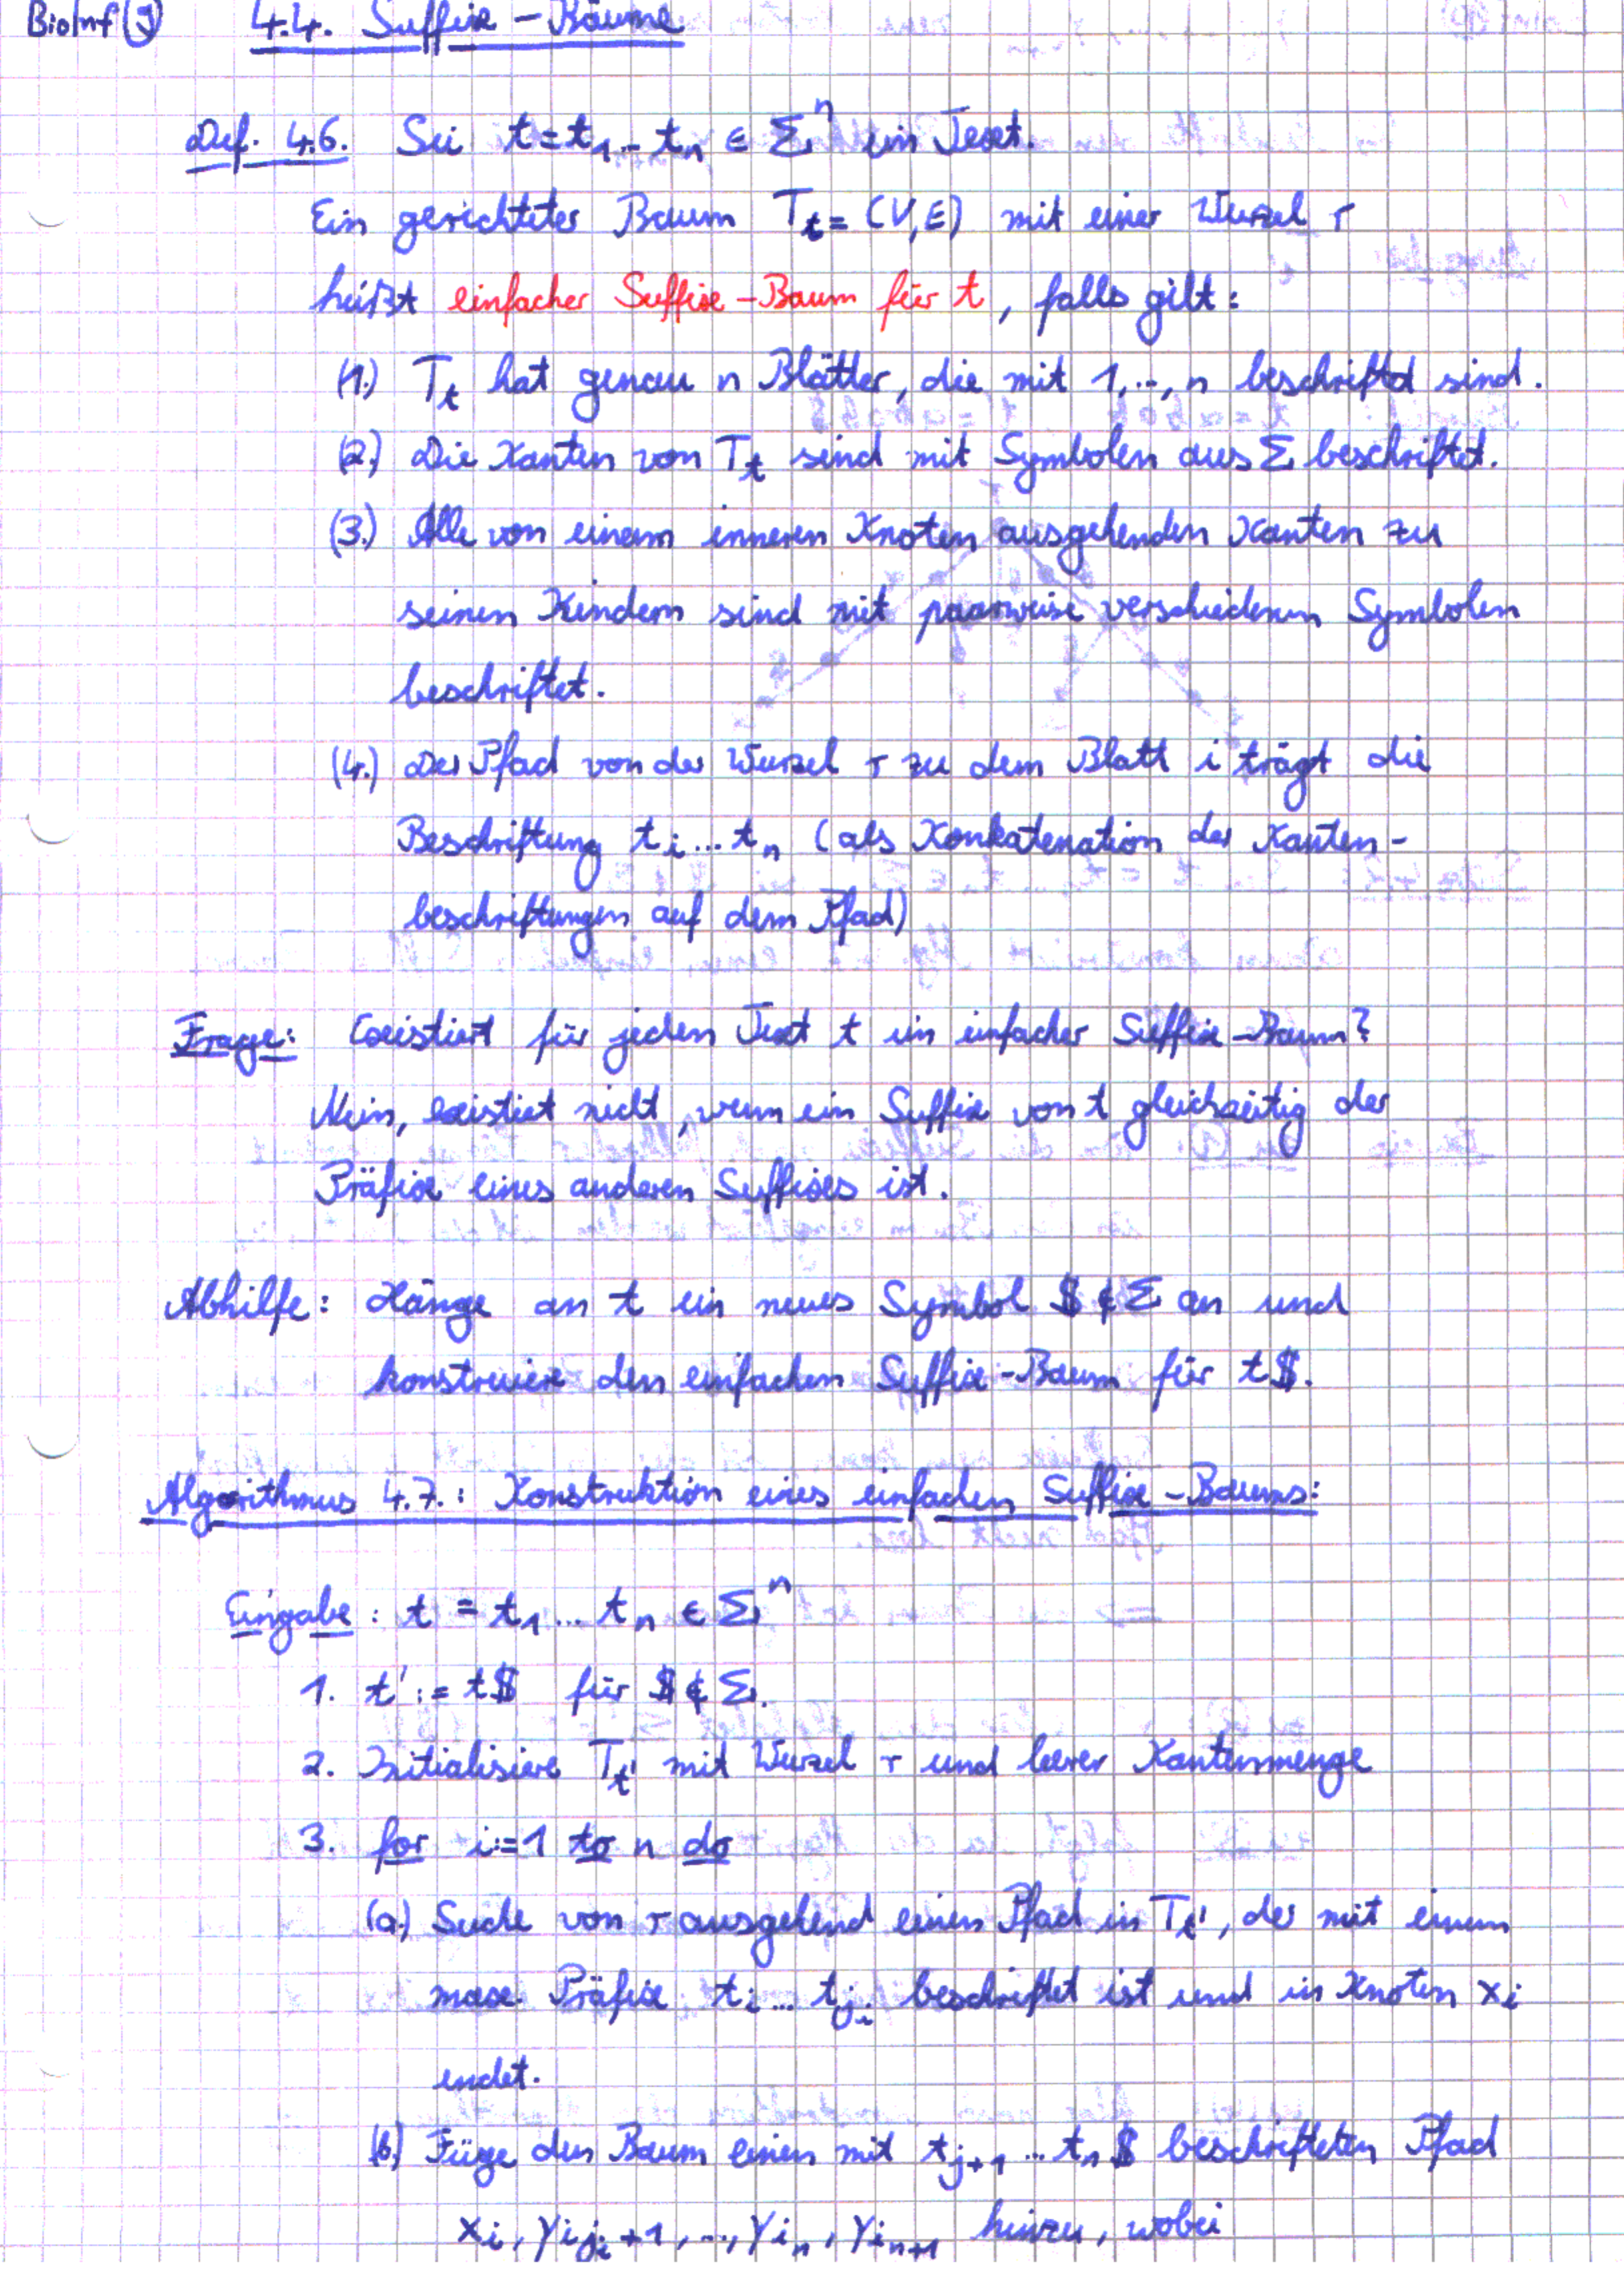 BioInf (5) 4.4. Suffix-Bäume
Def. 4.6. Sei t = t₁...tₙ ∈ Σⁿ ein Text.
Ein gerichteter Baum T_t = (V,E) mit einer Wurzel r
heißt einfacher Suffix-Baum für t, falls gilt:
(1.) T_t hat genau n Blätter, die mit 1,...,n beschriftet sind.
(2.) Die Kanten von T_t sind mit Symbolen aus Σ beschriftet.
(3.) Alle von einem inneren Knoten ausgehenden Kanten zu
seinen Kindern sind mit paarweise verschiedenen Symbolen
beschriftet.
(4.) Der Pfad von der Wurzel r zu dem Blatt i trägt die
Beschriftung t_i...t_n (als Konkatenation der Kanten-
beschriftungen auf dem Pfad)
Frage: Existiert für jeden Text t ein einfacher Suffix-Baum?
Nein, existiert nicht, wenn ein Suffix von t gleichzeitig der
Präfix eines anderen Suffixes ist.
Abhilfe: Hänge an t ein neues Symbol $ ∉ Σ an und
konstruiere den einfachen Suffix-Baum für t$.
Algorithmus 4.7.: Konstruktion eines einfachen Suffix-Baums:
Eingabe: t = t₁...tₙ ∈ Σⁿ
1. t' := t$ für $ ∉ Σ.
2. Initialisiere T_t' mit Wurzel r und leerer Kantenmenge
3. for i:=1 to n do
(a.) Suche von r ausgehend einen Pfad in T_t', der mit einem
max. Präfix t_i...t_{j_i} beschriftet ist und in Knoten x_i
endet.
(b.) Füge dem Baum einen mit t_{j+1}...t_n $ beschrifteten Pfad
x_i, y_{i j_i+1}, ..., y_{i n}, y_{i n+1} hinzu, wobei